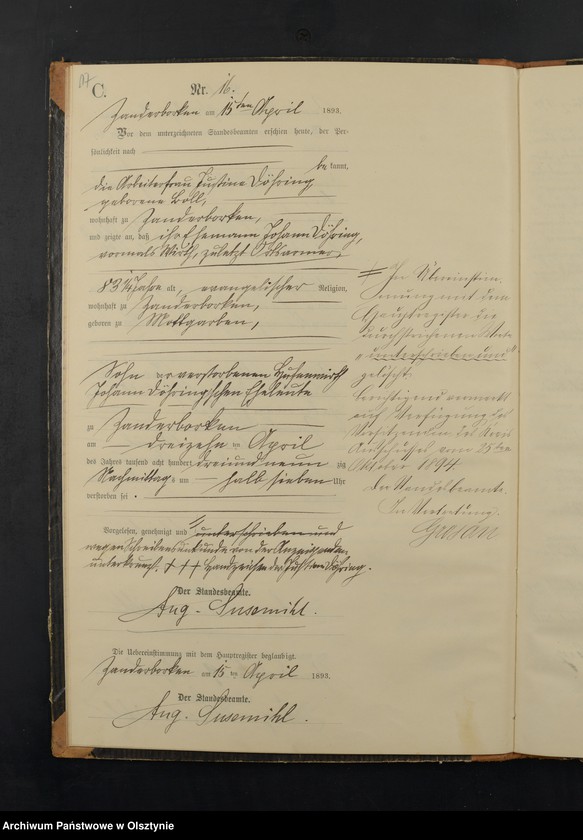 C.
Nr. 16.
Zanderborken am 15ten April 1893.
Vor dem unterzeichneten Standesbeamten erschien heute, der Per-
sönlichkeit nach
bekannt,
die Arbeiterfrau Justine Döhring
geborene Boll,
wohnhaft zu Zanderborken,
und zeigte an, daß ihr Ehemann Johann Döhring,
vormals Wirth, zuletzt Ortsarmer,
83 1/4 Jahre alt, evangelischer Religion,
wohnhaft zu Zanderborken,
geboren zu Mottgarben,
Sohn der verstorbenen Hufenwirth
Johann Döhring'schen Eheleute
zu Zanderborken
am dreizehn ten April
des Jahres tausend acht hundert dreiundneun zig
Nachmittags um halb sieben Uhr
verstorben sei.
Vorgelesen, genehmigt und unterschrieben und
wegen Schreibensunkunde von der Anzeigenden
unterkreuzt. + + + Handzeichen der Justine Döhring.
Der Standesbeamte.
Aug. Susemihl.
Die Uebereinstimmung mit dem Hauptregister beglaubigt.
Zanderborken am 15 ten April 1893.
Der Standesbeamte.
Aug. Susemihl.
In Übereinstim-
mung mit dem
Hauptregister die
durchstrichenen Worte
"unterschrieben und"
gelöscht.
Berichtigend vermerkt
auf Verfügung des
Vorsitzenden des Kreis
Ausschusses vom 25ten
Oktober 1894
Der Standesbeamte.
In Vertretung.
Archiwum Państwowe w Olsztynie